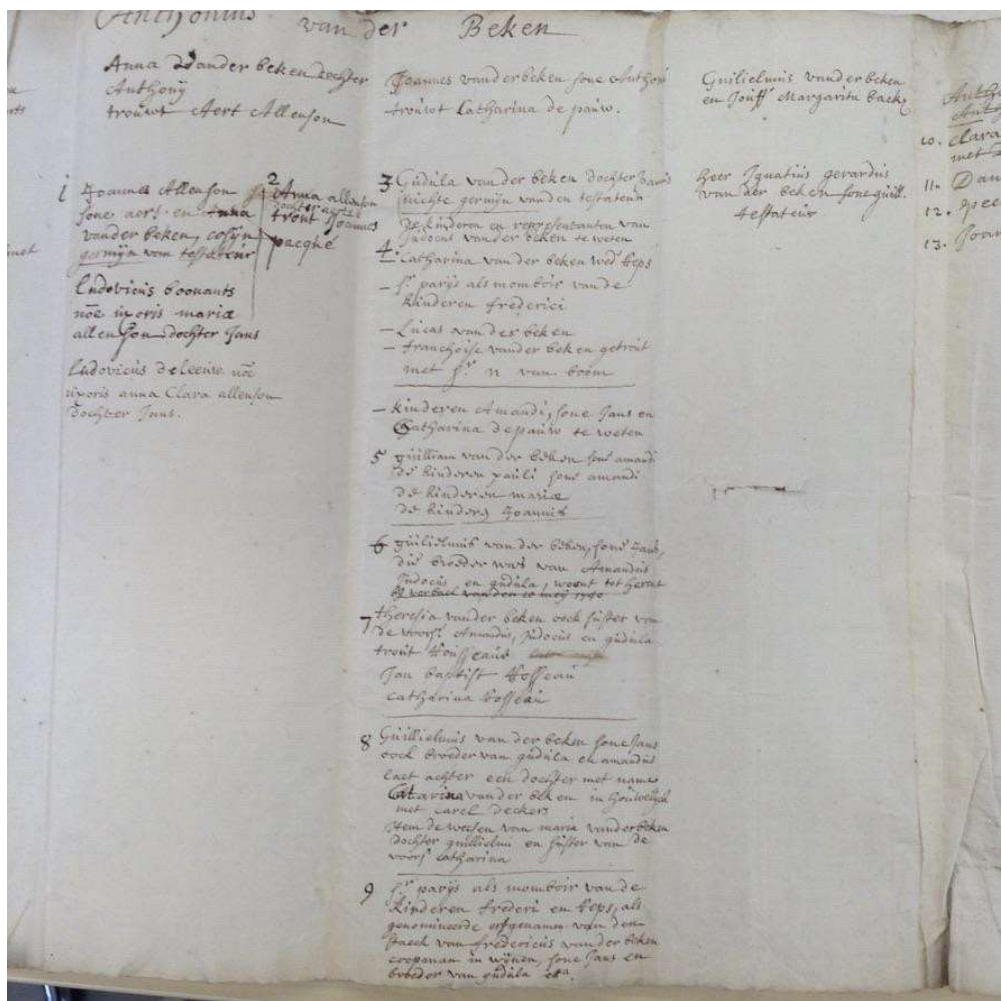 Anthonius van der Beken
Anna Vander beken dochter
Anthonij
trouwt Aert Allenson
Joannes vanderbeken sone Anthoni
trouwt Catharina de pauw.
Guilielmus vanderbeken
en Jouff Margarita back
1 Joannes Allenson
sone aert en Anna
vander beken, cosyn
germyn van testateur
Ludovicus boonants
noe uxoris maria
allenson dochter Jans
Ludovicus deleeuw noe
uxoris anna Clara allenson
dochter Jans.
2
Anna allenson
dochter aerts
trout Joannes
pacqué
3 Gudula vander beken dochter Jans
nichte germyn vanden testateur
De kinderen en representanten van
Judocus vander beken te weten
4 - Catharina vander beken wed keps
- sr parys als momboir van de
kinderen frederici
- Lucas vander beken
- franchoise vander beken getrout
met sr n van boom
- kinderen Amandi, sone Jans en
Catharina depauw te weten
5 guilliam van der beken sone amandi
de kinderen pauli sone amandi
de kinderen maria
de kinders Joannis
6 guilielmus van der beken, sone Jans,
die broeder was van Amandus
Judocus en gudula, woont tot herent
7 theresia vander beken oock suster van
de voors. Amandus, Judocus en gudula
trout Housseau
Jan baptist Hosseau
catharina hosseau
8 Guillielmus van der beken sone Jans
oock broeder van gudula en amandus
laet achter een dochter met name
Catarina vander beken in houwelyck
met carel deckers
Item de weesen van maria vanderbeken
dochter guillielmi en suster van de
voors catharina
9 sr parys als momboir van de
kinderen frederi en keps, als
genomineerde erfgenamen van den
staeck van fredericus vander beken
coopman in wynen, sone Jans en
broeder van gudula etca
heer Ignatius gerardus
van der beken sone guill.
testateur
10. clara
met
11.
12. peet
13. Joan